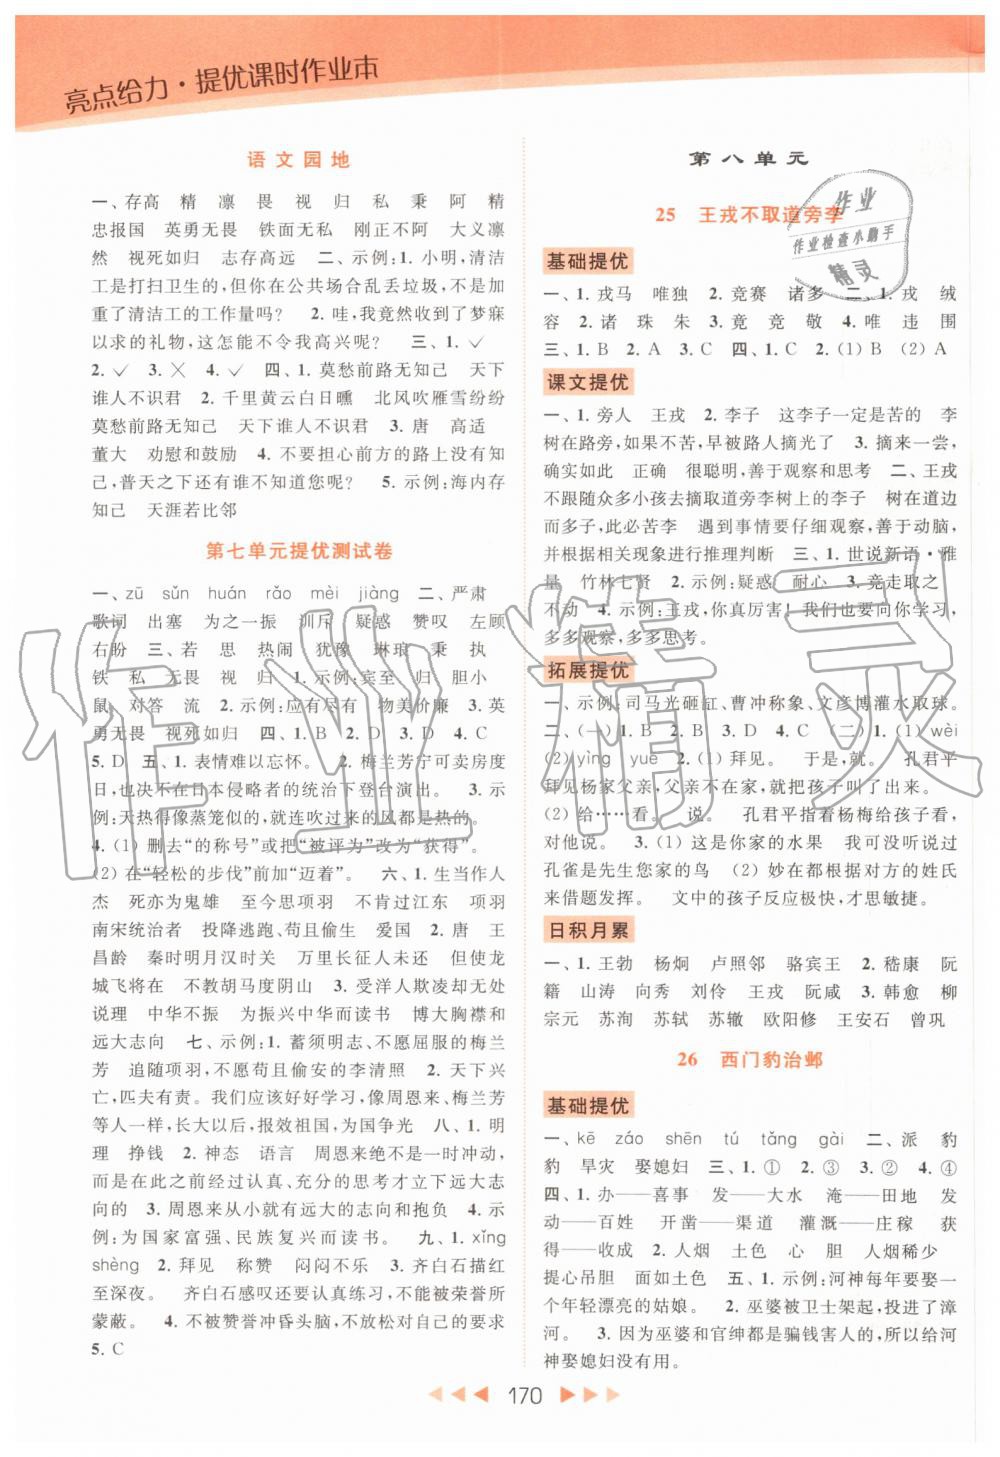 亮点给力·提优课时作业本
语文园地
一、存高 精 凛 畏 视 归 私 秉 阿 精
忠报国 英勇无畏 铁面无私 刚正不阿 大义凛
然 视死如归 志存高远 二、示例:1. 小明,清洁
工是打扫卫生的,但你在公共场合乱丢垃圾,不是加
重了清洁工的工作量吗? 2. 哇,我竟然收到了梦寐
以求的礼物,这怎能不令我高兴呢? 三、1. ✓
2. ✓ 3. ✕ 4. ✓ 四、1. 莫愁前路无知己 天下
谁人不识君 2. 千里黄云白日曛 北风吹雁雪纷纷
莫愁前路无知己 天下谁人不识君 3. 唐 高适
董大 劝慰和鼓励 4. 不要担心前方的路上没有知
己,普天之下还有谁不知道您呢? 5. 示例:海内存
知己 天涯若比邻
第七单元提优测试卷
一、zū sǔn huán rǎo mèi jiàng 二、严肃
歌词 出塞 为之一振 训斥 疑惑 赞叹 左顾
右盼 三、若 思 热闹 犹豫 琳琅 秉 执
铁 私 无畏 视 归 1. 示例:宾至 归 胆小
鼠 对答 流 2. 示例:应有尽有 物美价廉 3. 英
勇无畏 视死如归 四、1. B 2. D 3. D 4. C
5. D 五、1. 表情难以忘怀。 2. 梅兰芳宁可卖房度
日,也决不在日本侵略者的统治下登台演出。 3. 示
例:天热得像蒸笼似的,就连吹过来的风都是热的。
4. (1) 删去“的称号”或把“被评为”改为“获得”。
(2) 在“轻松的步伐”前加“迈着”。 六、1. 生当作人
杰 死亦为鬼雄 至今思项羽 不肯过江东 项羽
南宋统治者 投降逃跑、苟且偷生 爱国 2. 唐 王
昌龄 秦时明月汉时关 万里长征人未还 但使龙
城飞将在 不教胡马度阴山 3. 受洋人欺凌却无处
说理 中华不振 为振兴中华而读书 博大胸襟和
远大志向 七、示例:1. 蓄须明志、不愿屈服的梅兰
芳 追随项羽,不愿苟且偷安的李清照 2. 天下兴
亡,匹夫有责。我们应该好好学习,像周恩来、梅兰芳
等人一样,长大以后,报效祖国,为国争光 八、1. 明
理 挣钱 2. 神态 语言 周恩来不是一时冲动,
而是在此之前进行过认真、充分的思考才立下远大志
向的 3. 周恩来从小就有远大的志向和抱负 4. 示
例:为国家富强、民族复兴而读书。 九、1. xǐng
shèng 2. 拜见 称赞 闷闷不乐 3. 齐白石描红
至深夜。 齐白石感叹还要认真练习,不能被荣誉所
蒙蔽。 4. 不被赞誉冲昏头脑,不放松对自己的要求
5. C
第八单元
25 王戎不取道旁李
基础提优
一、1. 戎马 唯独 2. 竞赛 诸多 二、1. 戎 绒
容 2. 诸 珠 朱 3. 竟 竞 敬 4. 唯 违 围
三、1. B 2. A 3. C 四、1. C 2. (1) B (2) A
课文提优
一、1. 旁人 王戎 2. 李子 这李子一定是苦的 李
树在路旁,如果不苦,早被路人摘光了 3. 摘来一尝,
确实如此 正确 很聪明,善于观察和思考 二、王戎
不跟随众多小孩去摘取道旁李树上的李子 树在道边
而多子,此必苦李 遇到事情要仔细观察,善于动脑,
并根据相关现象进行推理判断 三、1. 世说新语·雅
量 竹林七贤 2. 示例:疑惑 耐心 3. 竞走取之
不动 4. 示例:王戎,你真厉害!我们也要向你学习,
多多观察,多多思考。
拓展提优
一、示例:司马光砸缸、曹冲称象、文彦博灌水取球。
二、(一) 1. C 2. B 3. D 4. C (二) 1. (1) wèi
(2) yìng yuē 2. (1) 拜见。 于是,就。 孔君平
拜见杨家父亲,父亲不在家,就把孩子叫了出来。
(2) 给……看。 说。 孔君平指着杨梅给孩子看,
对他说。 3. (1) 这是你家的水果 我可没听说过
孔雀是先生您家的鸟 (2) 妙在能根据对方的姓氏
来借题发挥。 文中的孩子反应极快,才思敏捷。
日积月累
一、1. 王勃 杨炯 卢照邻 骆宾王 2. 嵇康 阮
籍 山涛 向秀 刘伶 王戎 阮咸 3. 韩愈 柳
宗元 苏洵 苏轼 苏辙 欧阳修 王安石 曾巩
26 西门豹治邺
基础提优
一、kē záo shēn tú tǎng gài 二、派 豹
豹 旱灾 娶媳妇 三、1. ① 2. ③ 3. ② 4. ④
四、1. 办——喜事 发——大水 淹——田地 发
动——百姓 开凿——渠道 灌溉——庄稼 获
得——收成 2. 人烟 土色 心 胆 人烟稀少
提心吊胆 面如土色 五、1. 示例:河神每年要娶一
个年轻漂亮的姑娘。 2. 巫婆被卫士架起,投进了漳
河。 3. 因为巫婆和官绅都是骗钱害人的,所以给河
神娶媳妇没有用。
170
作业
作业检查小助手
精灵
作业精灵